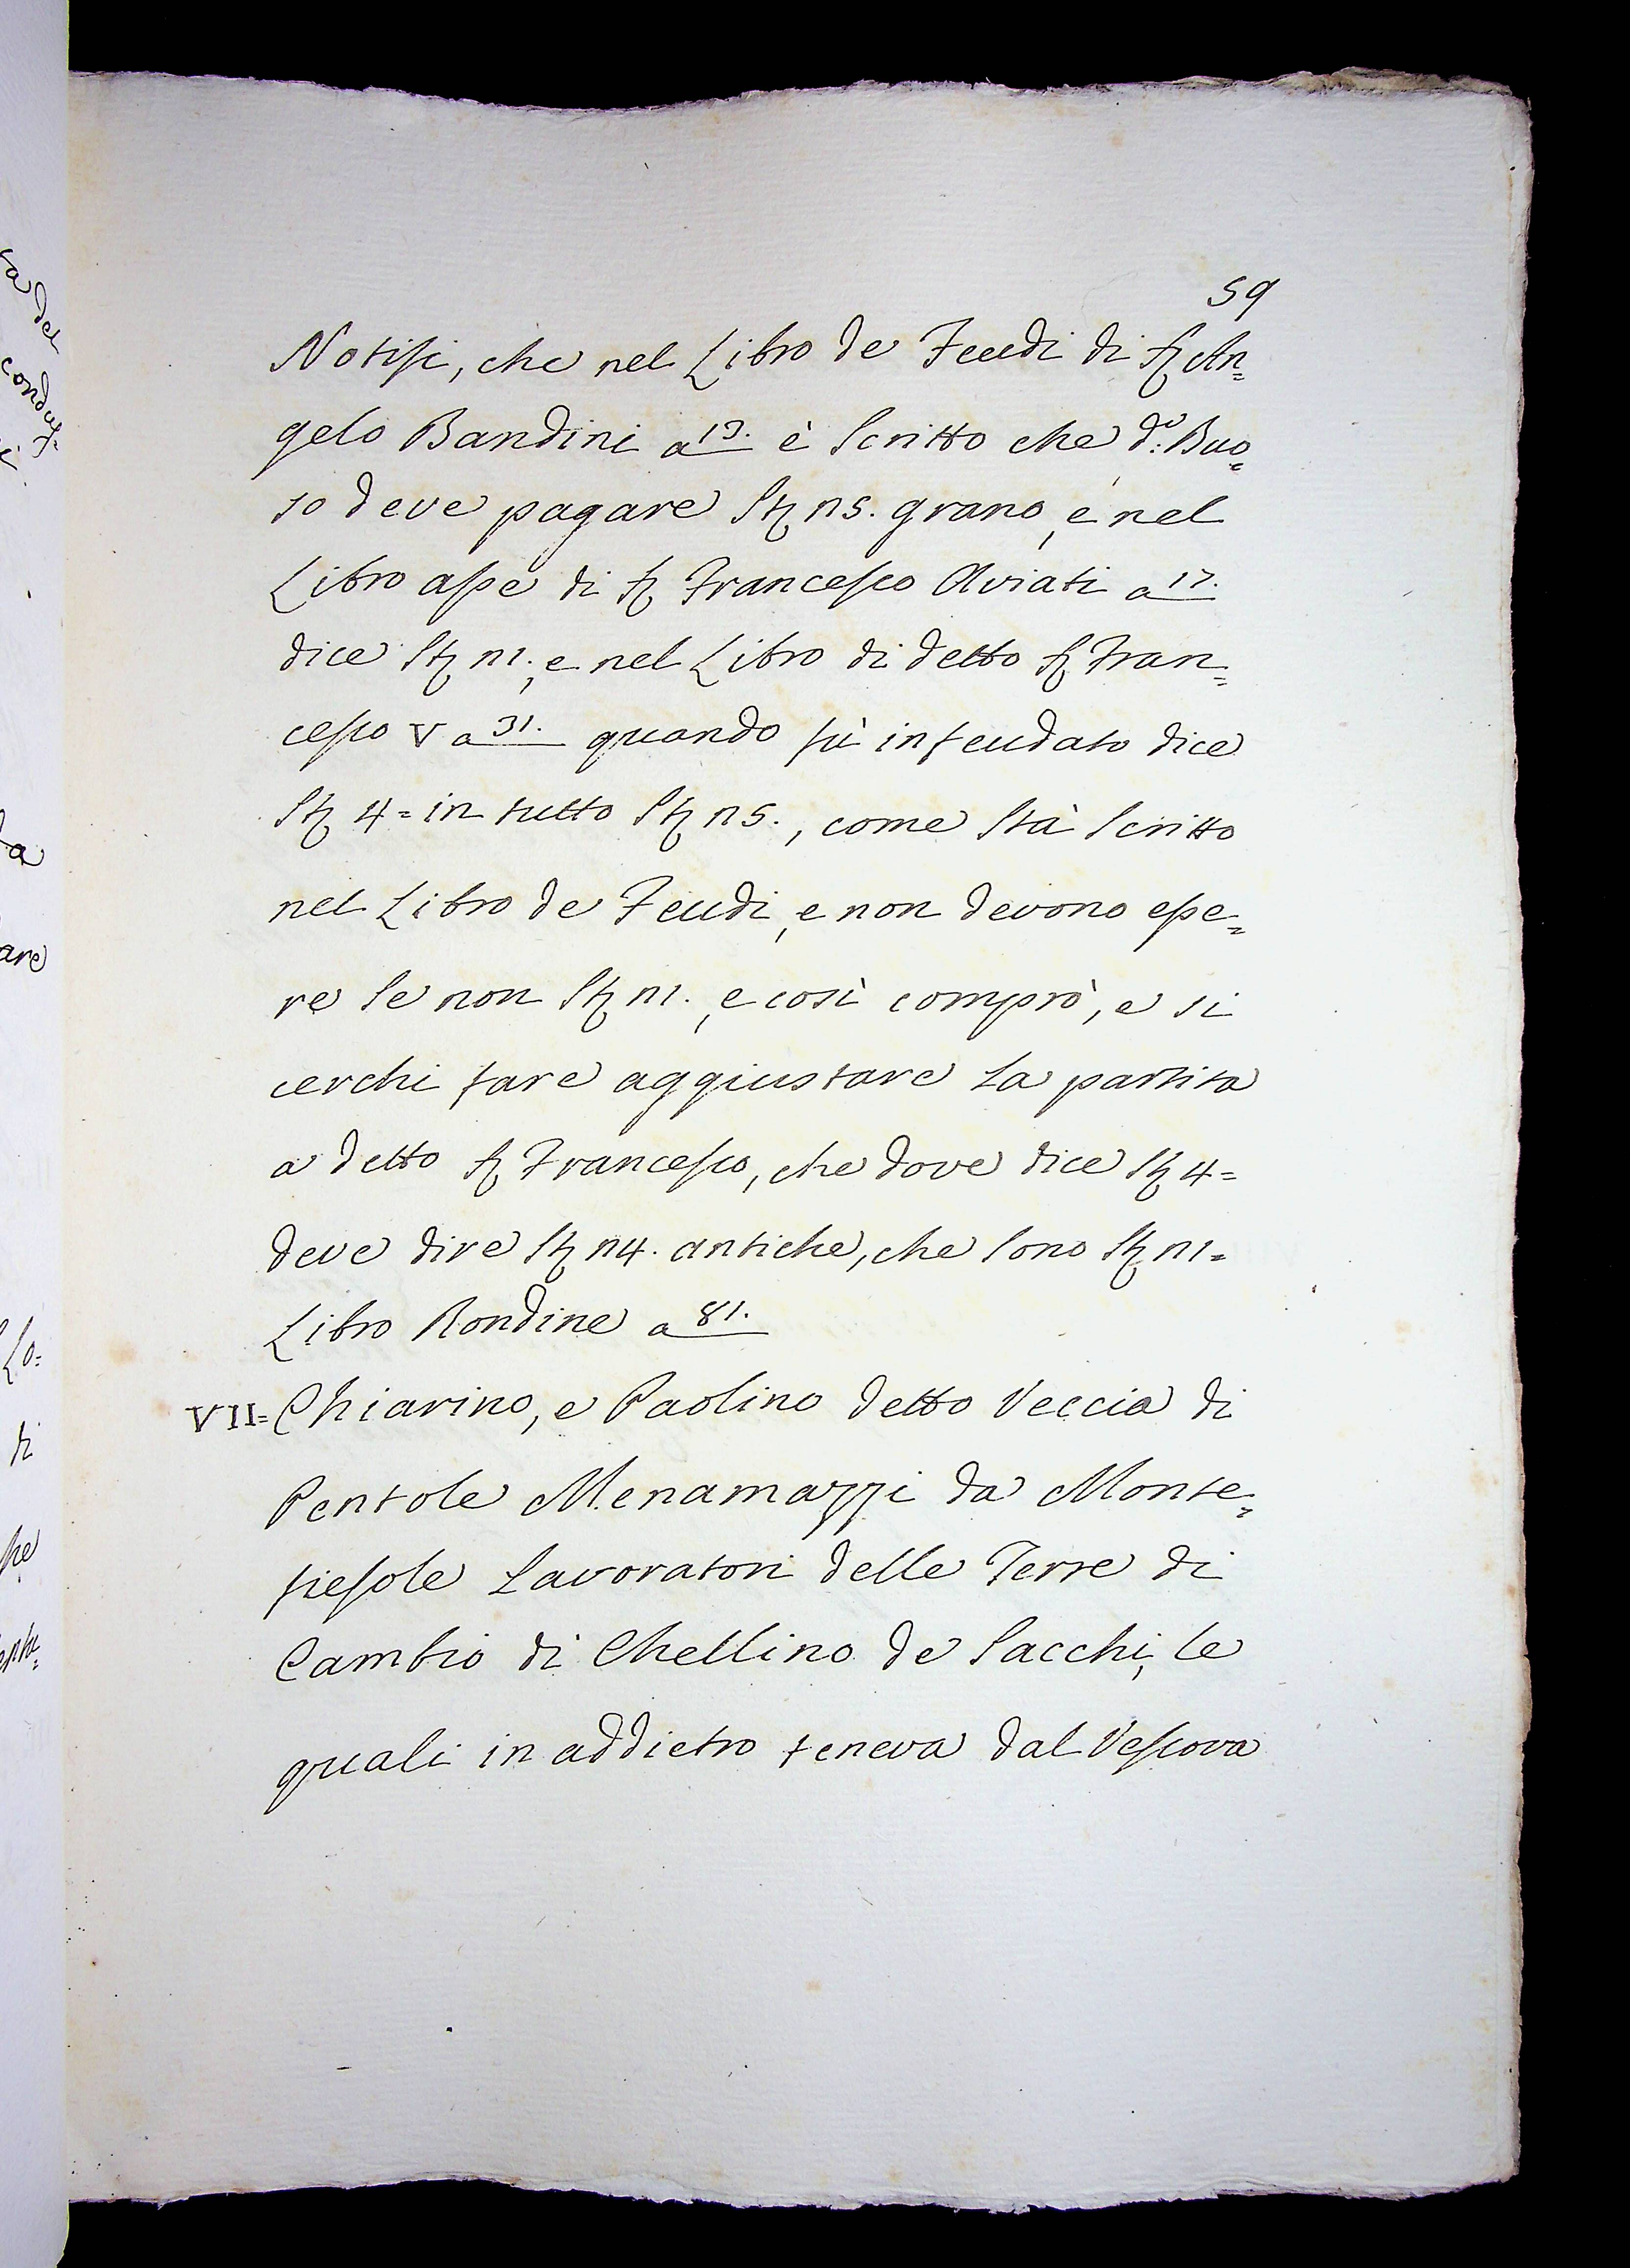 59
Notisi, che nel Libro de Feudi di Sʳ An=
gelo Bandini a 19. è Scritto che d.º Buo=
so deve pagare Stʳ n5. grano, e nel
Libro asse di Sʳ Francesco Aviati a 17.
dice Stʳ n1., e nel Libro di detto Sʳ Fran=
cesco V a 31. quando fù infeudato dice
Stʳ 4= in tutto Stʳ n5., come Stà Scritto
nel Libro de Feudi, e non devono esse=
re Se non Stʳ n1., e così comprò, e si
cerchi fare aggiustare La partita
a detto Sʳ Francesco, che dove dice Stʳ 4=
deve dire Stʳ n4. antiche, che Sono Stʳ n1=
Libro Rondine a 81.
VII= Chiarino, e Paolino detto Veccia di
Pentole Menamazzi da Monte=
fiesole Lavoratori delle Terre di
Cambio di Chellino de Sacchi, le
quali in addietro teneva dal Vescova